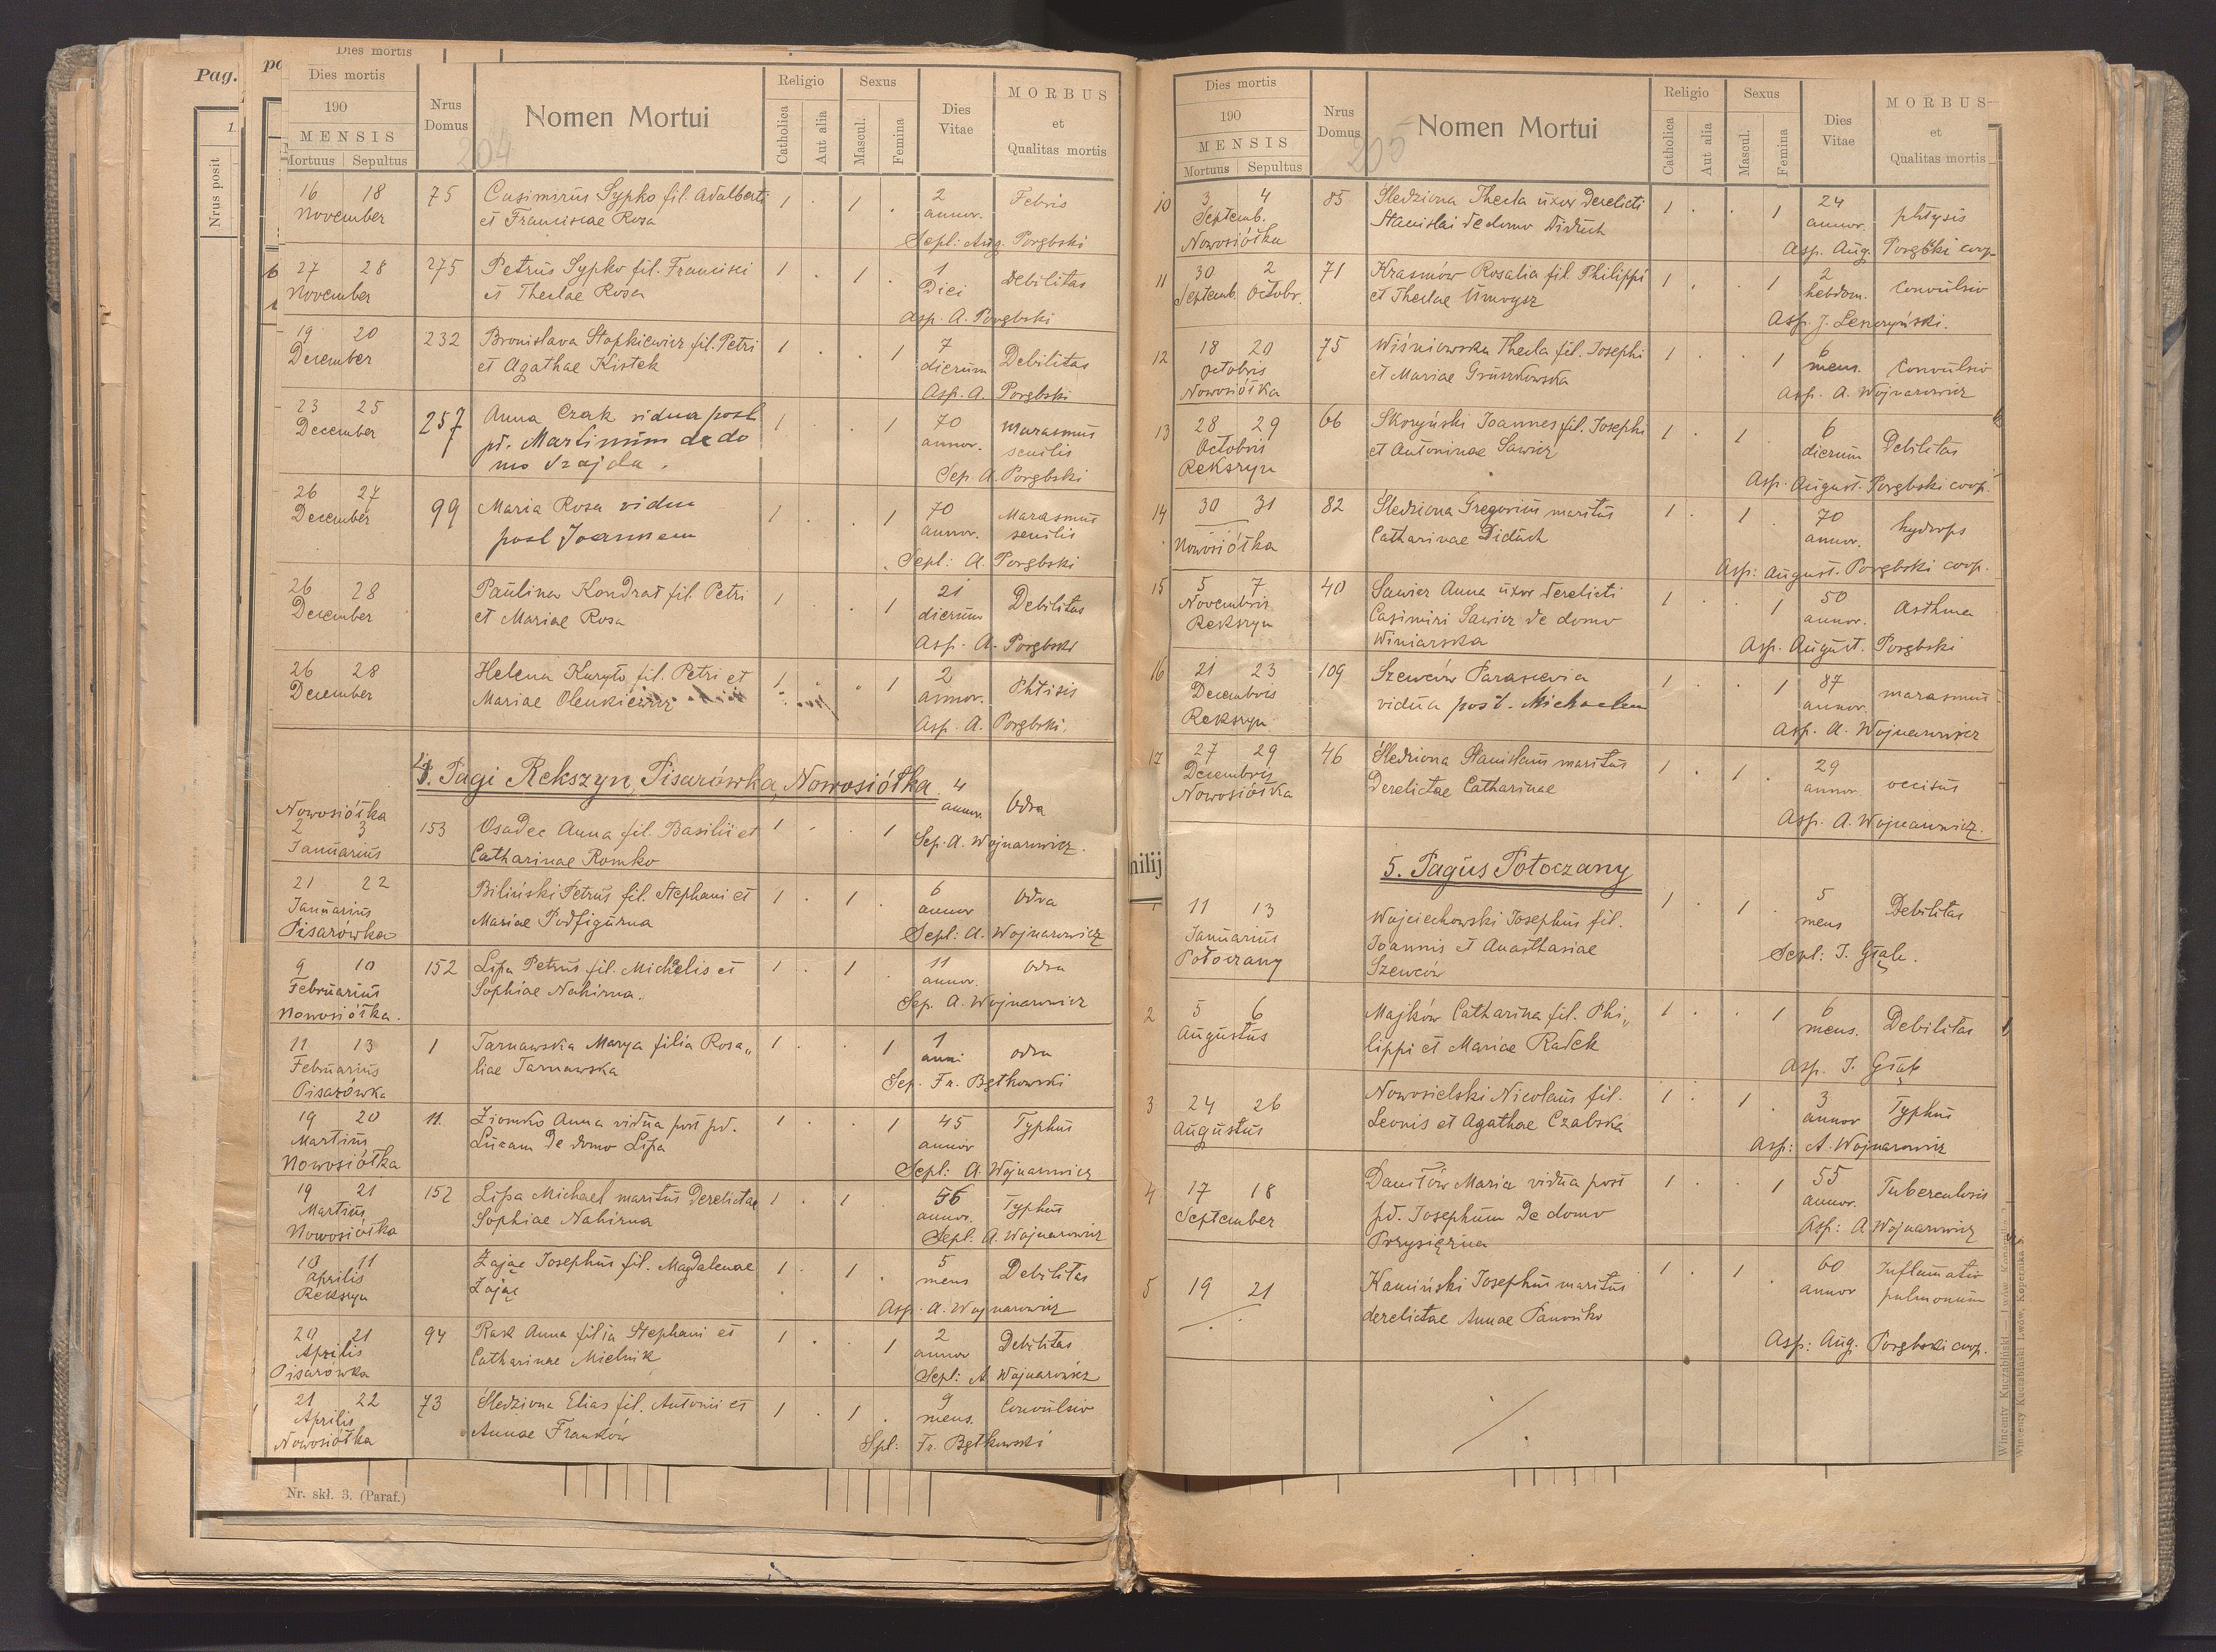 Pag.
Nrus posit
Dies mortis
Dies mortis
190
MENSIS
Mortuus Sepultus
Nrus Domus
Nomen Mortui
204
Religio
Catholica
Aut alia
Sexus
Mascul.
Femina
Dies Vitae
MORBUS
et
Qualitas mortis
16 18 75 Casimirus Sypko fil. Adalberti 1 . 1 . 2 Febris
November et Franciscae Rosa annor.
Sepl: Aug. Porębski
27 28 275 Petrus Sypko fil. Francisci 1 . 1 . 1 Debilitas
November et Theclae Rosa Diei
Asp. A. Porębski
19 20 232 Bronislava Stopkiewicz fil. Petri 1 . . 1 7 Debilitas
December et Agathae Kistek dierum
Asp. A. Porębski
23 25 257 Anna Czak vidua post 1 . . 1 70 Marasmus
December pd. Martinum de do annor. senilis
mo Szajda.
Sep. A. Porębski
26 27 99 Maria Rosa vidua 1 . . 1 70 Marasmus
December post Joannem annor. senilis
Sepl: A. Porębski
26 28 Paulina Kondrat fil. Petri 1 . . 1 21 Debilitas
December et Mariae Rosa dierum
Asp. A. Porębski
26 28 Helena Kuryło fil. Petri et 1 . . 1 2 Phtisis
December Mariae Olenkiewicz annor.
Asp. A. Porębski.
4. Pagi Rekszyn, Pisarówka, Nowosiółka
Nowosiółka 4 Odra
2 3 153 Osadec Anna fil. Basilii et 1 . . 1 annor.
Januarius Catharinae Romko Sep. A. Wojnarowicz.
21 22 Biliński Petrus fil. Stephani et 1 . 1 . 6 Odra
Januarius Mariae Podfigurna annor
Pisarówka Sepl: A. Wojnarowicz
9 10 152 Lipa Petrus fil. Michelis et 1 . 1 . 11 Odra
Februarius Sophiae Nahirna. annor.
Nowosiółka. Sep. A. Wojnarowicz
11 13 1 Tarnawska Marya filia Rosa„ 1 . . 1 1 odra
Februarius liae Tarnawska anni
Pisarówka Sep. Fr. Bętkowski
19 20 11. Ziomko Anna vidua post pd. 1 . . 1 45 Typhus
Martius Lucam de domo Lipa annor
Nowosiółka Sepl: A. Wojnarowicz
19 21 152 Lipa Michael maritus derelictae 1 . 1 56 Typhus
Martius Sophiae Nahirna annor.
Nowosiółka Sepl: A. Wojnarowicz
10 11 Zając Josephus fil. Magdalenae 1 . 1 . 5 Debilitas
Aprilis Zając mens
Rekszyn Asp. A. Wojnarowicz
20 21 94 Rak Anna filia Stephani et 1 . . 1 2 Debilitas
Aprilis Catharinae Mielnik annor
Pisarówka Sepl: A Wojnarowicz
21 22 73 Śledziona Elias fil. Antonii et 1 . 1 . 9 Convulsio
Aprilis Annae Franków mens.
Nowosiółka Spl: Fr. Bętkowski
Nr. skł. 3. (Paraf.)
Dies mortis
190
MENSIS
Mortuus Sepultus
Nrus Domus
Nomen Mortui
205
Religio
Catholica
Aut alia
Sexus
Mascul.
Femina
Dies Vitae
MORBUS
et
Qualitas mortis
10 3 4 85 Śledziona Thecla uxor derelicti 1 . . 1 24 phtysis
Septemb. Stanislai de domo Diduch annor.
Nowosiółka Asp. Aug. Porębski coop.
11 30 2 71 Krasmów Rosalia fil. Philippi 1 . . 1 2 Convulsio
Septemb. Octobr. et Theclae Umrysz hebdom.
Asp. J. Lenczyński.
12 18 20 75 Wiśniowska Thecla fil. Josephi 1 . . 1 6 Convulsio
Octobris et Mariae Gruszkowska mens.
Nowosiółka Asp. A. Wojnarowicz
13 28 29 66 Skoryński Joannes fil. Josephi 1 . 1 6 Debilitas
Octobris et Antoninae Sawicz dierum
Rekszyn Asp. August. Porębski coop.
14 30 31 82 Śledziona Gregorius maritus 1 . 1 70 hydrops
Nowosiółka Catharinae Diduch annor.
Asp: August. Porębski coop.
15 5 7 40 Sawicz Anna uxor derelicti 1 . . 1 50 Asthma
Novembris Casimiri Sawicz de domo annor.
Rekszyn Winiarska Asp. August. Porębski
16 21 23 109 Szewców Parascevia 1 . . 1 87 marasmus
Decembris vidua post. Michaelem annor.
Rekszyn Asp. A. Wojnarowicz
17 27 29 46 Śledziona Stanislaus maritus 1 . 1 . 29 occisus
Decembris derelictae Catharinae annor
Nowosiółka Asp. A. Wojnarowicz.
milij
5. Pagus Potoczany
1 11 13 Wojciechowski Josephus fil. 1 . 1 . 5 Debilitas
Januarius Joannis et Anasthasiae mens
Potoczany Szewców Sepl: J. Głąb.
2 5 6 Majków Catharina fil. Phi„ 1 . . 1 6 Debilitas
Augustus lippi et Mariae Radek mens.
Asp. J. Głąb
3 24 26 Nowosielski Nicolaus fil. 1 . 1 . 3 Typhus
Augustus Leonis et Agathae Czabska annor
Asp: A. Wojnarowicz
4 17 18 Daniłów Maria vidua post 1 . . 1 55 Tuberculosis
September pd. Josephum de domo annor.
Przysiężna Asp: A Wojnarowicz
5 19 21 Kamiński Josephus maritus 1 . 1 . 60 Inflamatio
derelictae Annae Panońko annor pulmonum
Asp: Aug. Porębski coop.
Wincenty Kuczabiński Lwów, Kopernika
Wincenty Kuczabiński Lwów, Kopernika 5.